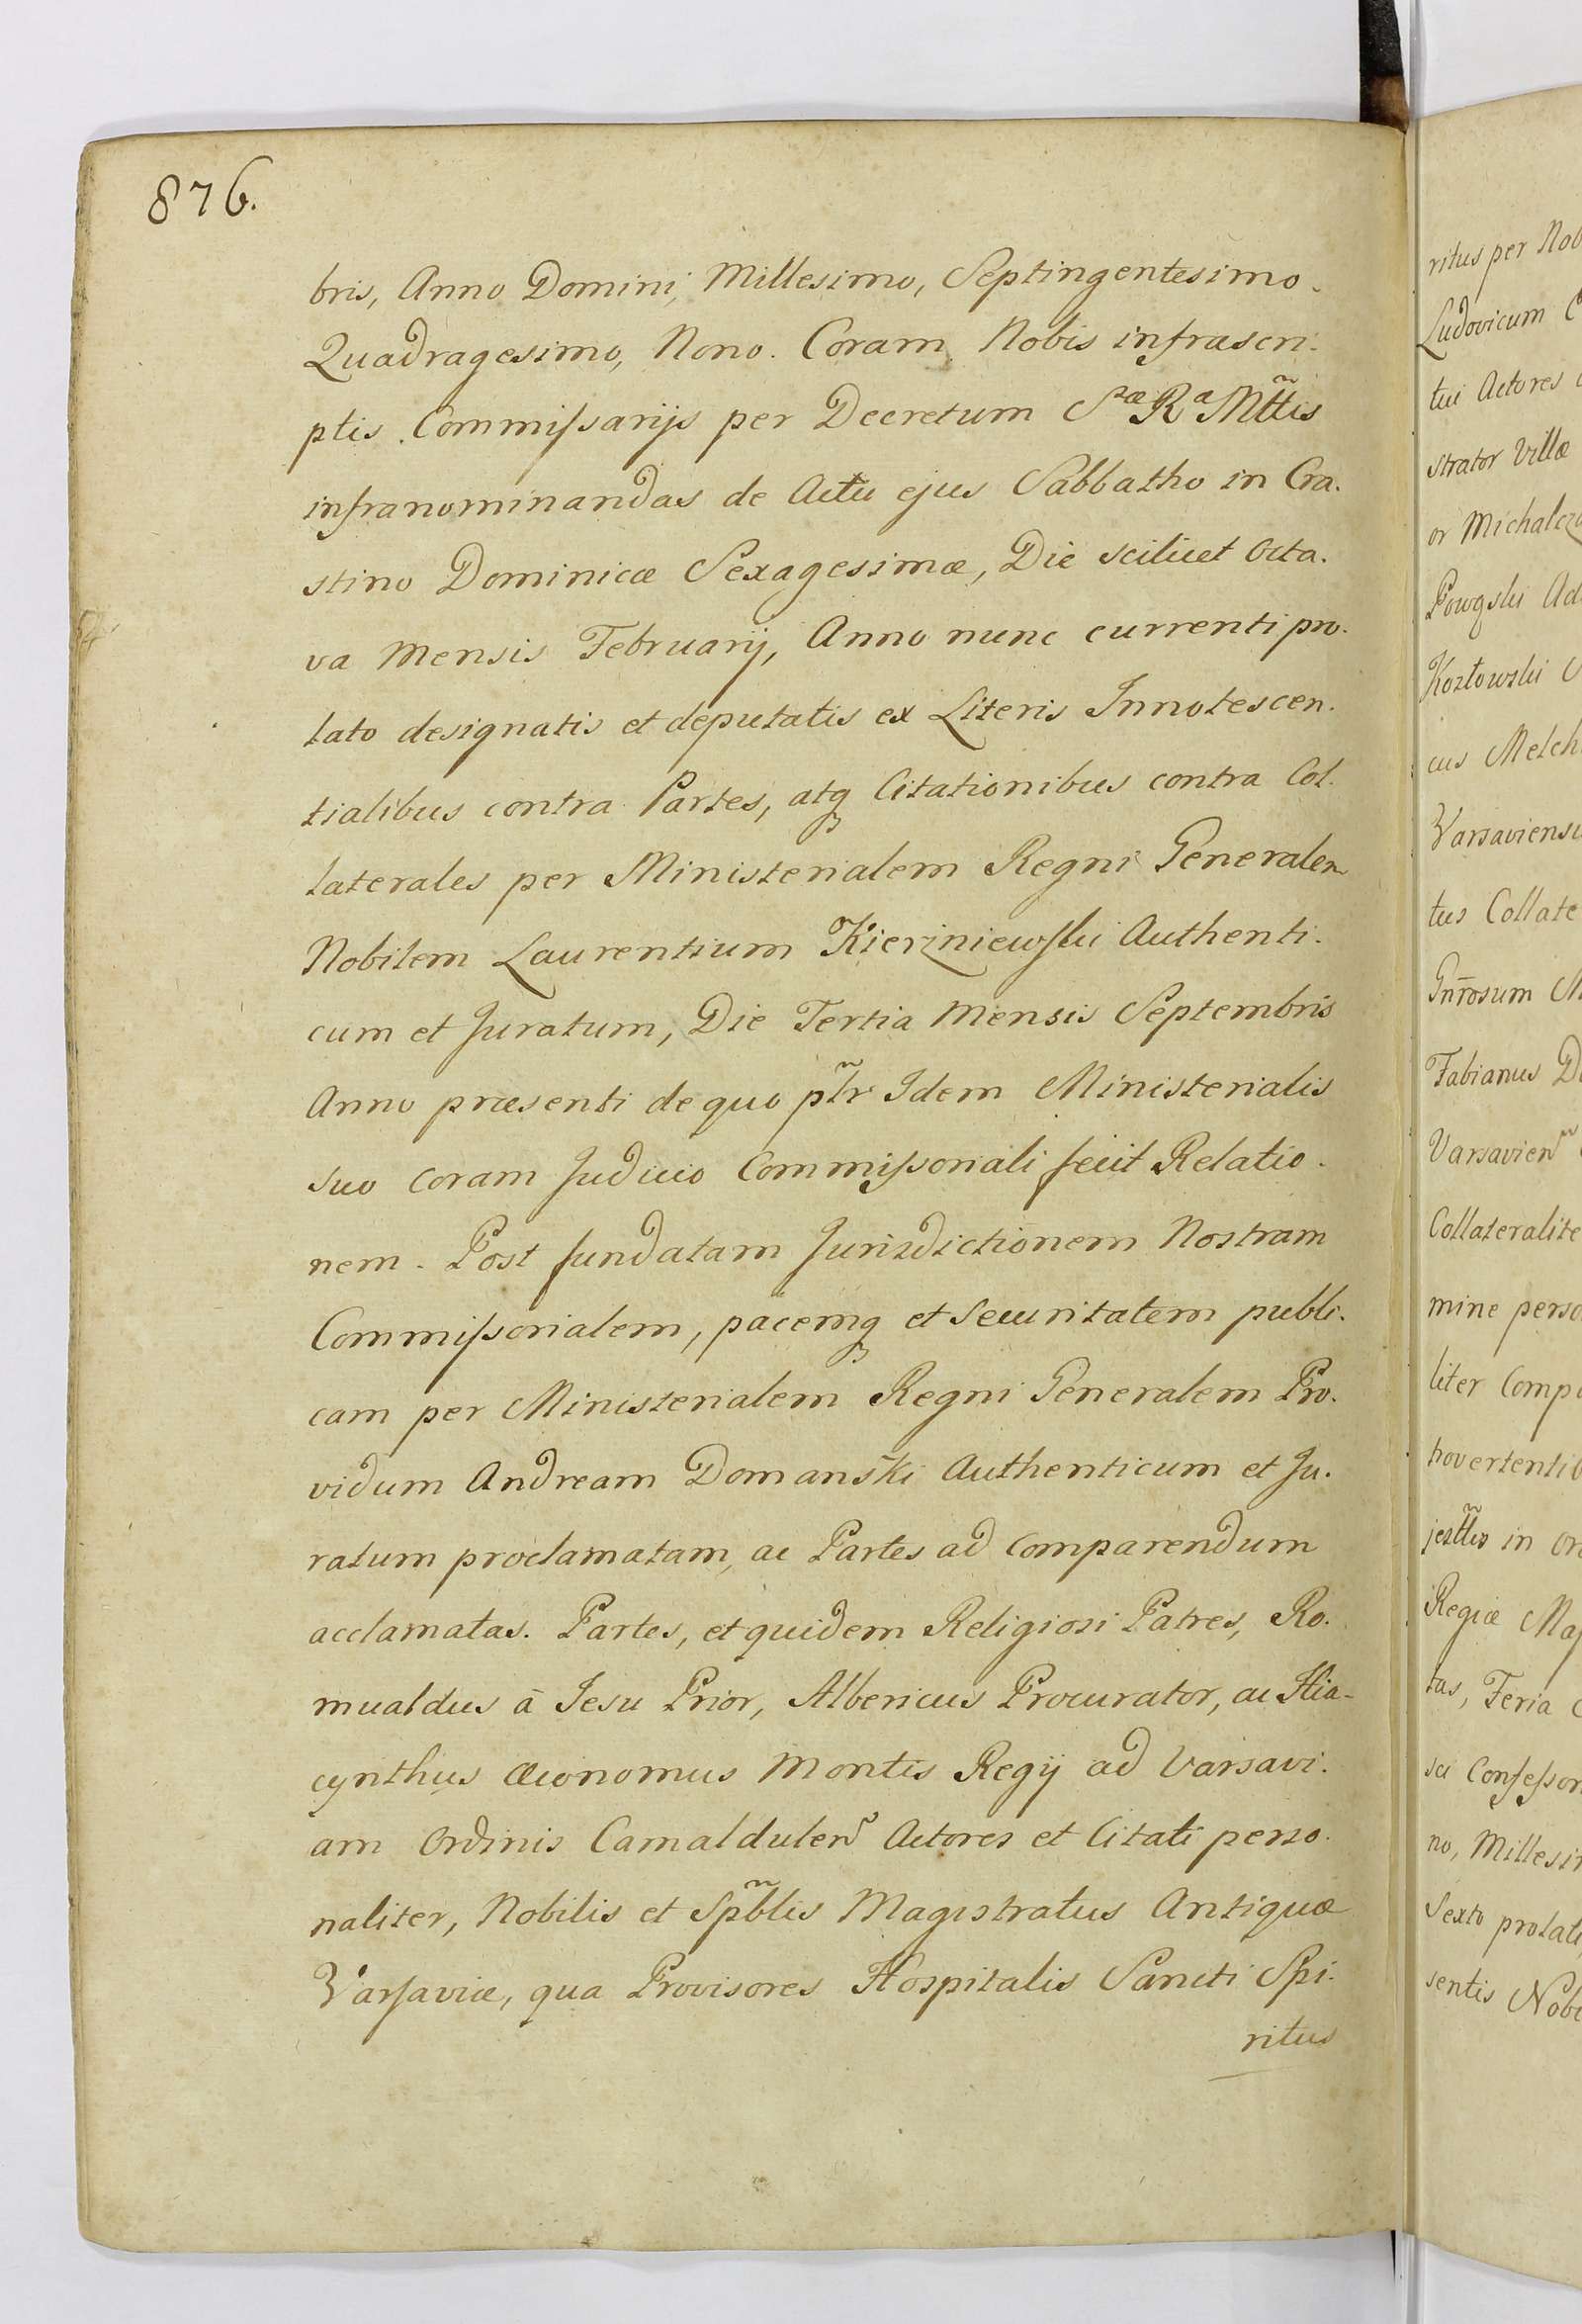 876.
bris, Anno Domini, Millesimo, Septingentesimo.
Quadragesimo, Nono. Coram Nobis infrascri.
ptis Commissarijs per Decretum Sæ Ra Mttis
infranominandas de Actu ejus Sabbatho in Cra.
stino Dominicæ Sexagesimæ, Die scilicet Octa.
va Mensis Februarij, Anno nunc currenti pro.
lato designatis et deputatis ex Literis Innotescen.
tialibus contra Partes, atq Citationibus contra Col.
laterales per Ministerialem Regni Generalem
Nobilem Laurentium Kierzniewski Authenti.
cum et Juratum, Die Tertia Mensis Septembris
Anno præsenti de quo ptr Idem Ministerialis
suo coram Judicio Commissoriali fecit Relatio.
nem. Post fundatam Jurisdictionem Nostram
Commissorialem, pacemq et securitatem publi.
cam per Ministerialem Regni Generalem Pro.
vidum Andream Domański Authenticum et Ju.
ratum proclamatam, ac Partes ad comparendum
acclamatas. Partes, et quidem Religiosi Patres, Ro.
mualdus à Jesu Prior, Albericus Procurator, ac Hia-
cynthus Œconomus Montis Regij ad Varsavi.
am Ordinis Camaldulen̄ Actores et Citati perso.
naliter, Nobilis et Spblis Magistratus Antiquæ
Varsaviæ, qua Provisores Hospitalis Sancti Spi.
ritus
ritus per Nob
Ludovicum C
tui Actores
strator Villæ
or Michalcz
Powąski Ad
Kozłowski
cus Melch
Varsaviens
tus Collate
Gnrosum
Fabianus D
Varsavien̄
Collateralite
mine perso
liter Comp
hovertentib
jesttis in or
Regiæ Maj
tas, Feria
sci Confessor
no, Millesi
Sexto prolat
sentis Nobi